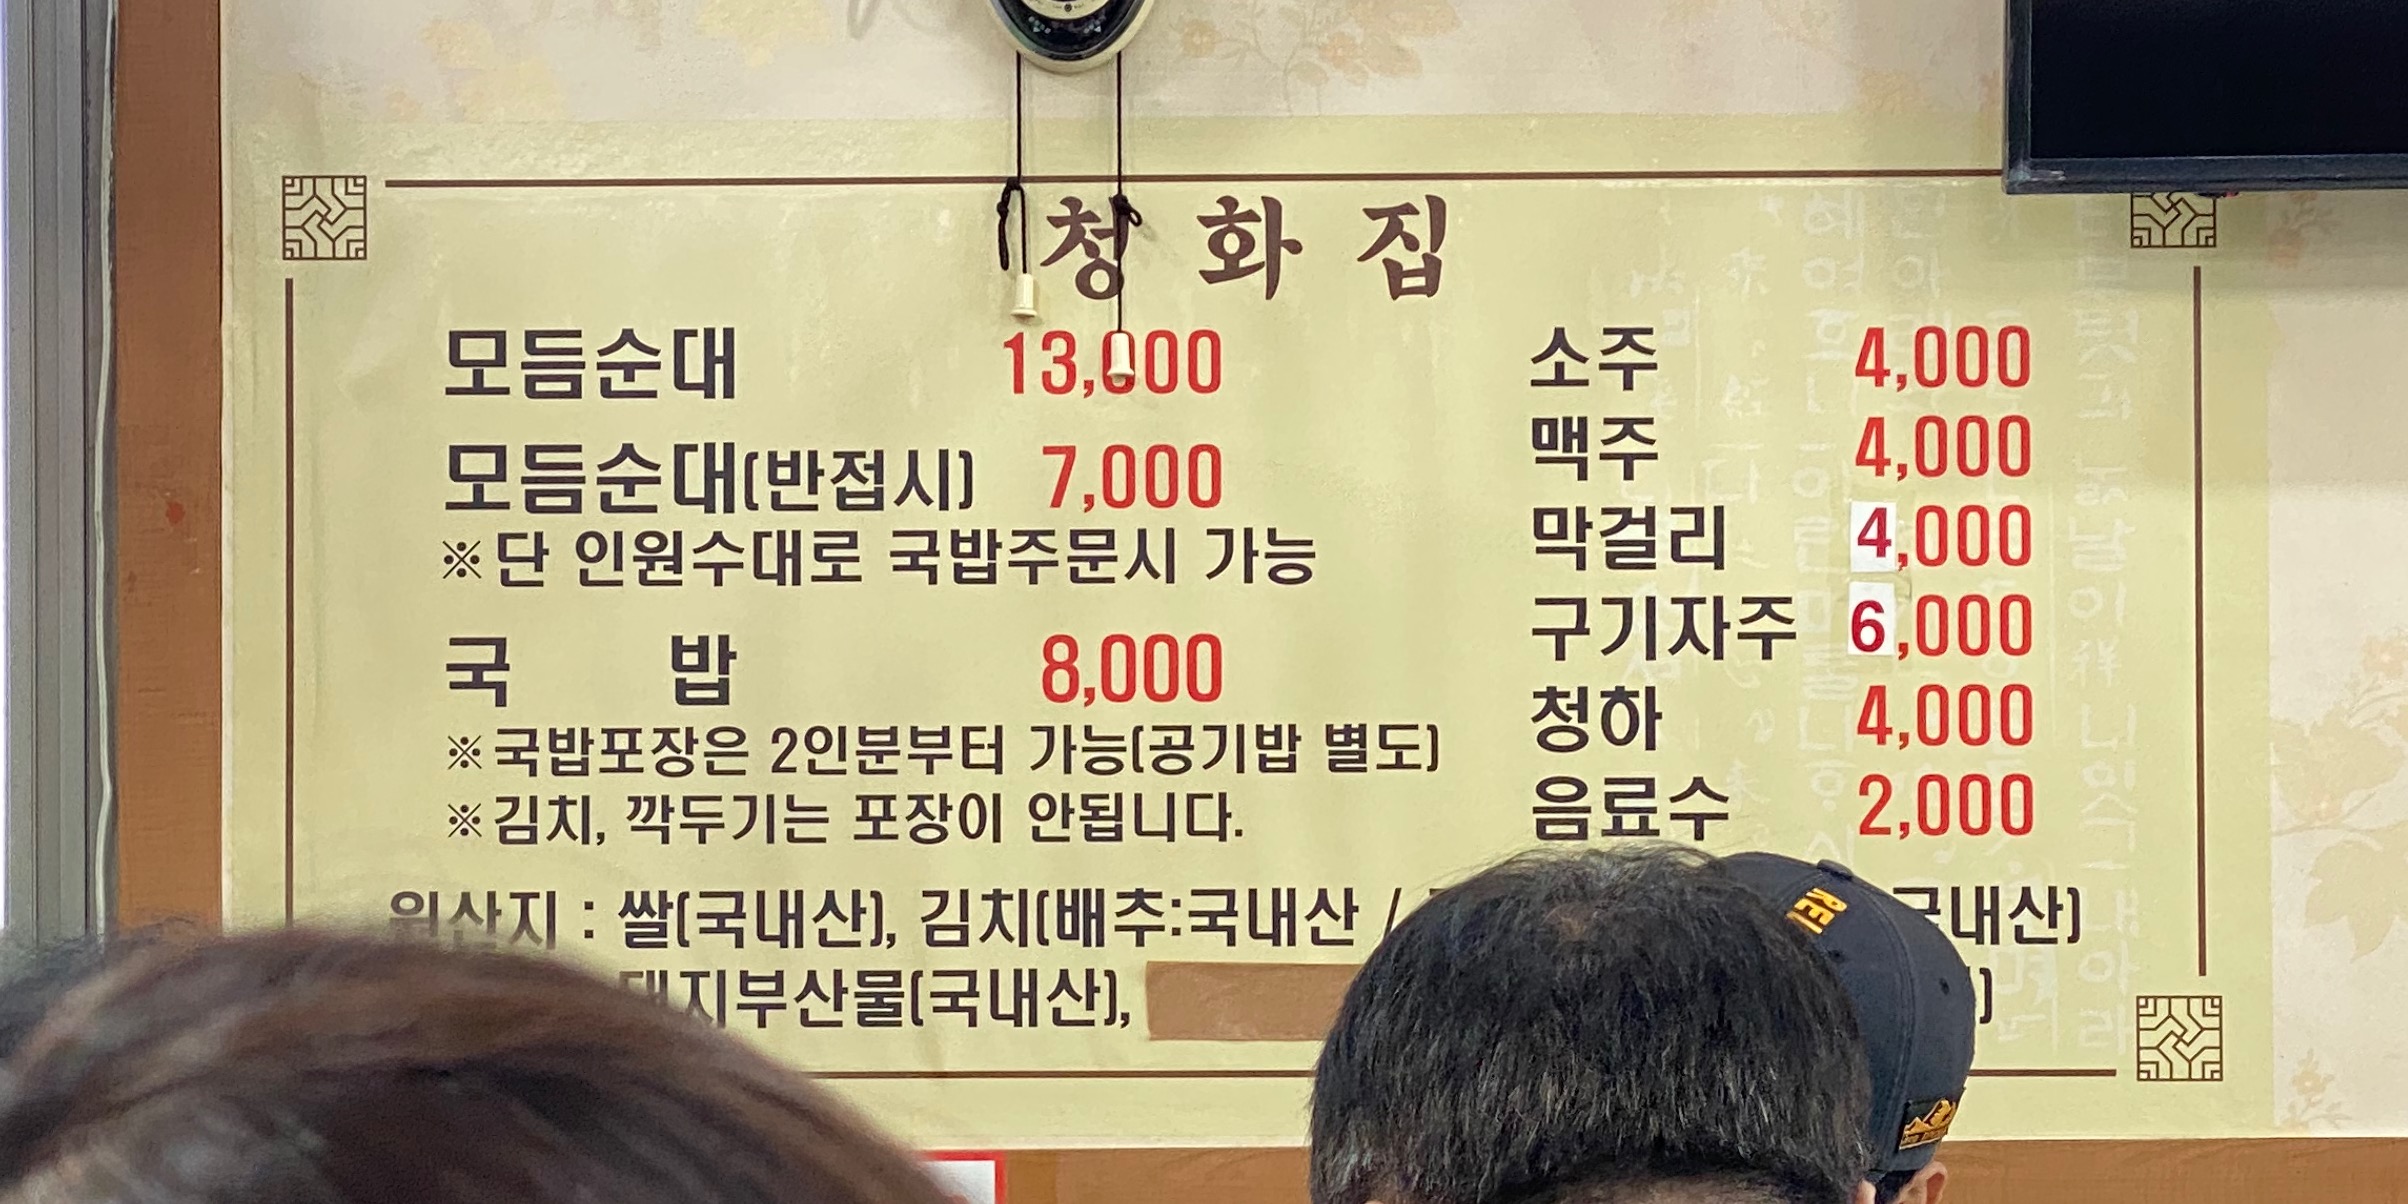 청화집
모듬순대 13,000
모듬순대(반접시) 7,000
※단 인원수대로 국밥주문시 가능
국밥 8,000
※국밥포장은 2인분부터 가능(공기밥 별도)
※김치, 깍두기는 포장이 안됩니다.
소주 4,000
맥주 4,000
막걸리 4,000
구기자주 6,000
청하 4,000
음료수 2,000
원산지 : 쌀(국내산), 김치(배추:국내산 / 국내산)
돼지부산물(국내산),